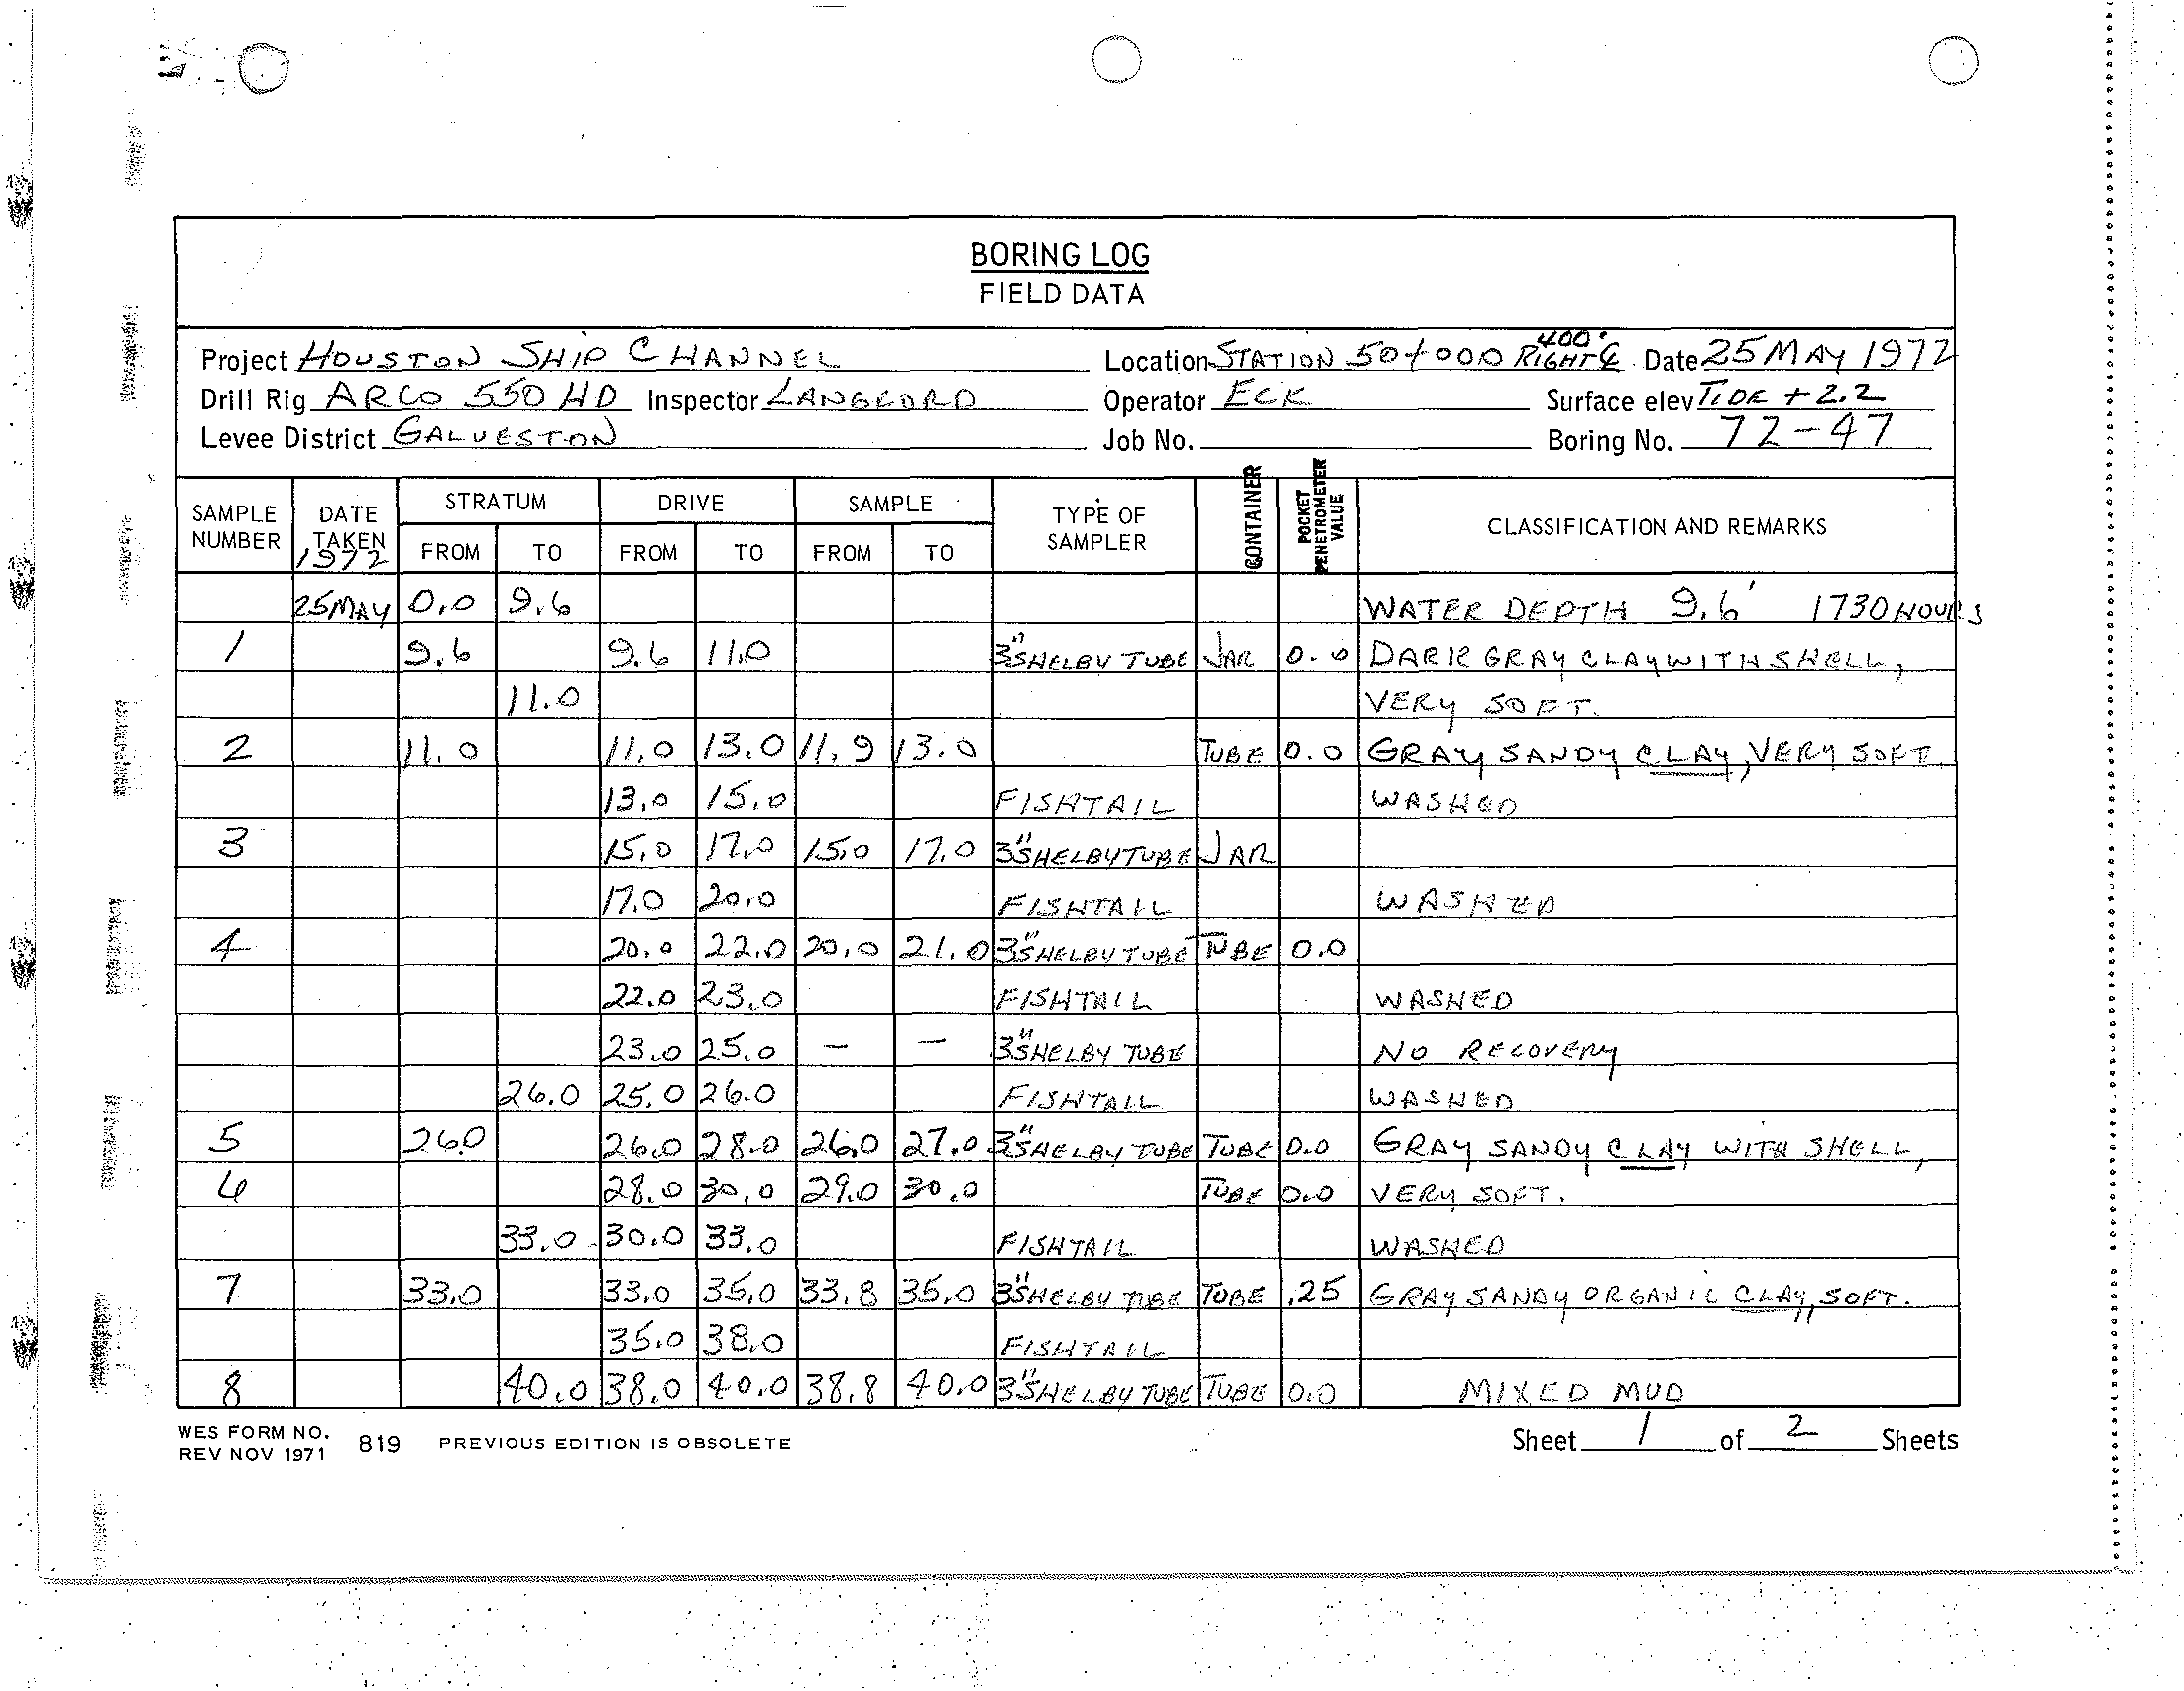 BORING LOG
FIELD DATA
Project HOUSTON SHIP CHANNEL Location STATION 50+000 400' RIGHT ℄ Date 25 MAY 1972
Drill Rig ARCO 550 HD Inspector LANGFORD Operator ECK Surface elev TIDE +2.2
Levee District GALVESTON Job No. Boring No. 72-47
SAMPLE NUMBER DATE TAKEN 1972 STRATUM FROM TO DRIVE FROM TO SAMPLE FROM TO TYPE OF SAMPLER CONTAINER POCKET PENETROMETER VALUE CLASSIFICATION AND REMARKS
25 MAY 0.0 9.6 WATER DEPTH 9.6' 1730 HOURS
1 9.6 9.6 11.0 3" SHELBY TUBE JAR 0.0 DARK GRAY CLAY WITH SHELL,
11.0 VERY SOFT.
2 11.0 11.0 13.0 11.9 13.0 TUBE 0.0 GRAY SANDY CLAY, VERY SOFT.
13.0 15.0 FISHTAIL WASHED
3 15.0 17.0 15.0 17.0 3" SHELBY TUBE JAR
17.0 20.0 FISHTAIL WASHED
4 20.0 22.0 20.0 21.0 3" SHELBY TUBE TUBE 0.0
22.0 23.0 FISHTAIL WASHED
23.0 25.0 - - 3" SHELBY TUBE NO RECOVERY
26.0 25.0 26.0 FISHTAIL WASHED
5 26.0 26.0 28.0 26.0 27.0 3" SHELBY TUBE TUBE 0.0 GRAY SANDY CLAY WITH SHELL,
6 28.0 30.0 29.0 30.0 TUBE 0.0 VERY SOFT.
33.0 30.0 33.0 FISHTAIL WASHED
7 33.0 33.0 35.0 33.8 35.0 3" SHELBY TUBE TUBE .25 GRAY SANDY ORGANIC CLAY, SOFT.
35.0 38.0 FISHTAIL
8 40.0 38.0 40.0 38.8 40.0 3" SHELBY TUBE TUBE 0.0 MIXED MUD
WES FORM NO. 819 PREVIOUS EDITION IS OBSOLETE Sheet 1 of 2 Sheets
REV NOV 1971